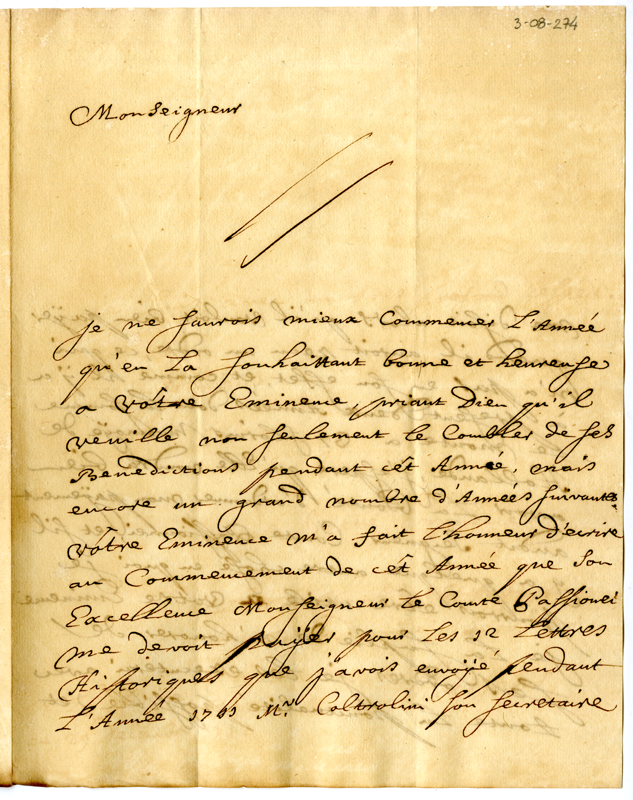 3-08-274
Monseigneur
je ne saurois mieux Commencer L'Année
qu'en La souhaittant bonne et heureuse
a vôtre Eminence, priant Dieu qu'il
veuille non seulement le Combler de ses
Benedictions pendant cét Année, mais
encore un grand nombre d'Années suivantes.
vôtre Eminence m'a fait l'honneur d'ecrire
au Commencement de cét Année que son
Excellence Monseigneur le Comte Passionei
me devoit païjer pour les 12 Lettres
Historiques que j'avois envoijé pendant
L'Année 1711 Mr. Coltrolini son secretaire